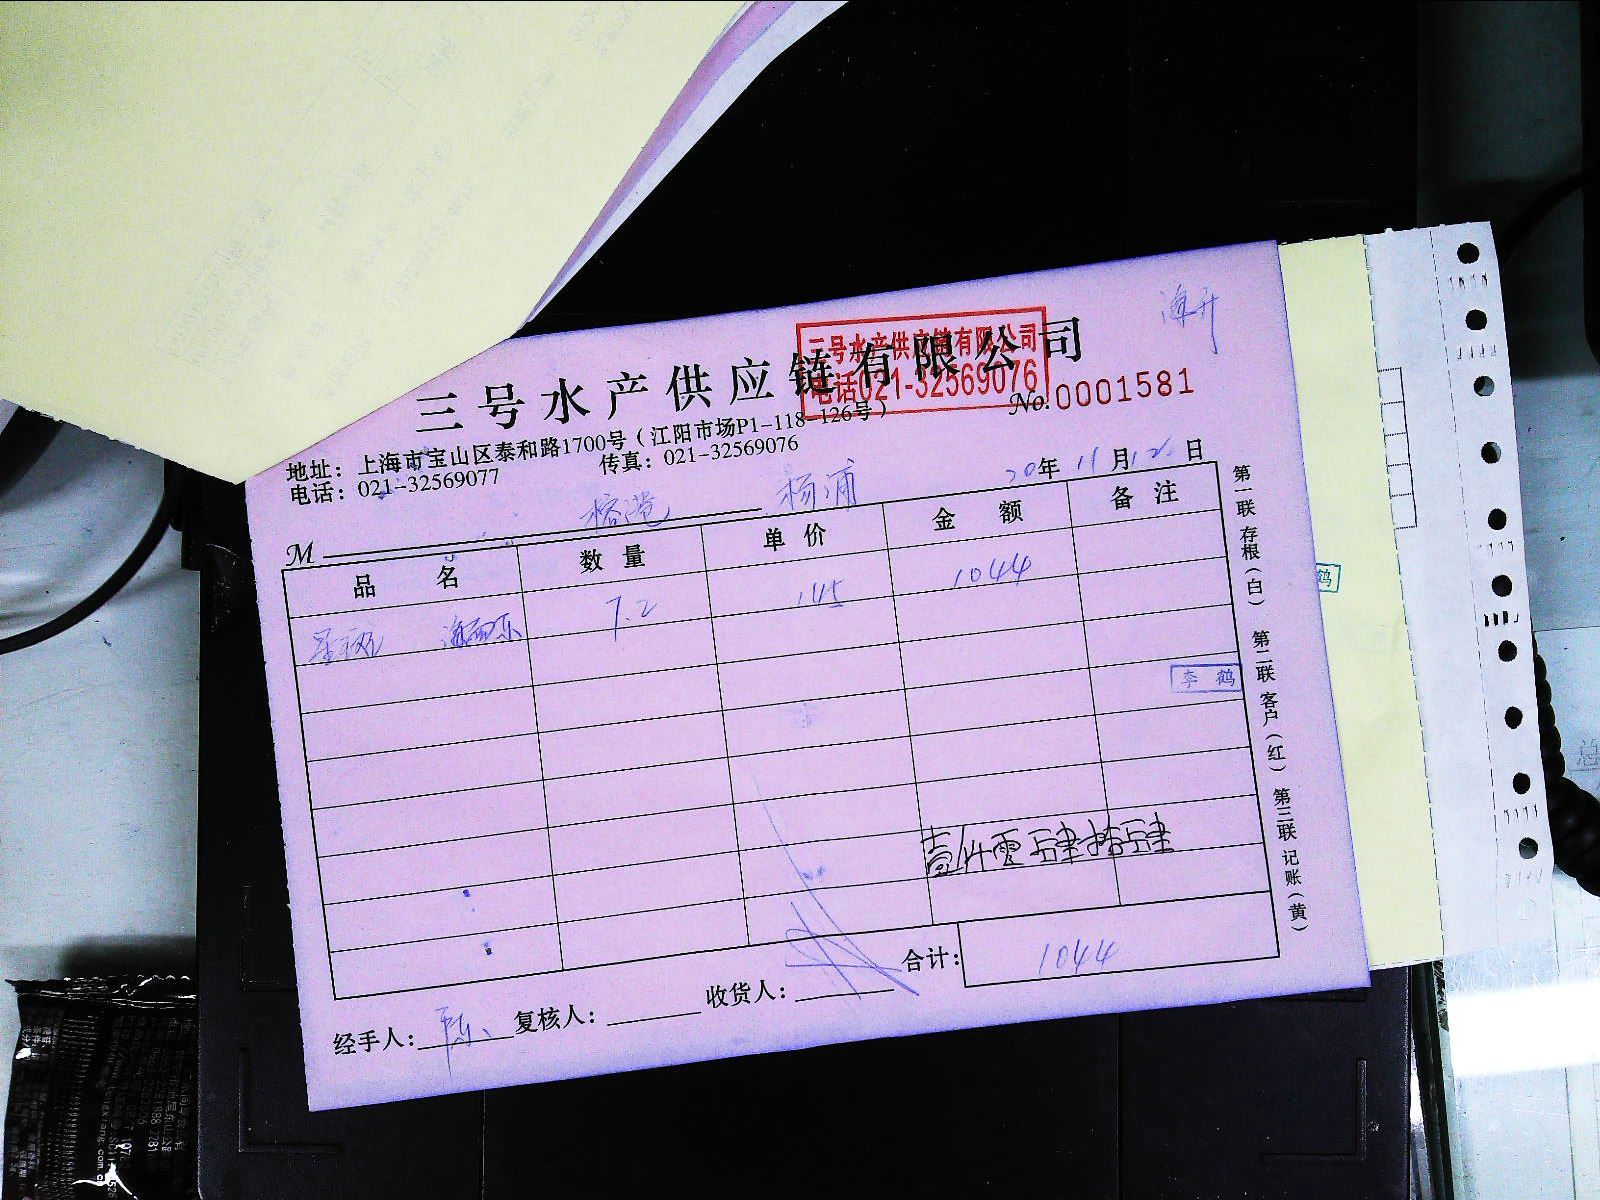 三号水产供应链有限公司
三号水产供应链有限公司
电话021-32569076
No. 0001581
地址：上海市宝山区泰和路1700号（江阳市场P1-118-126号）
电话：021-32569077 传真：021-32569076
20年 11月 日
M 榕港 杨浦
品名 数量 单价 金额 备注
7.2 145 1044
李鹤
壹仟零肆拾肆
合计： 1044
经手人： 复核人： 收货人：
第一联 存根（白） 第二联 客户（红） 第三联 记账（黄）
鹤